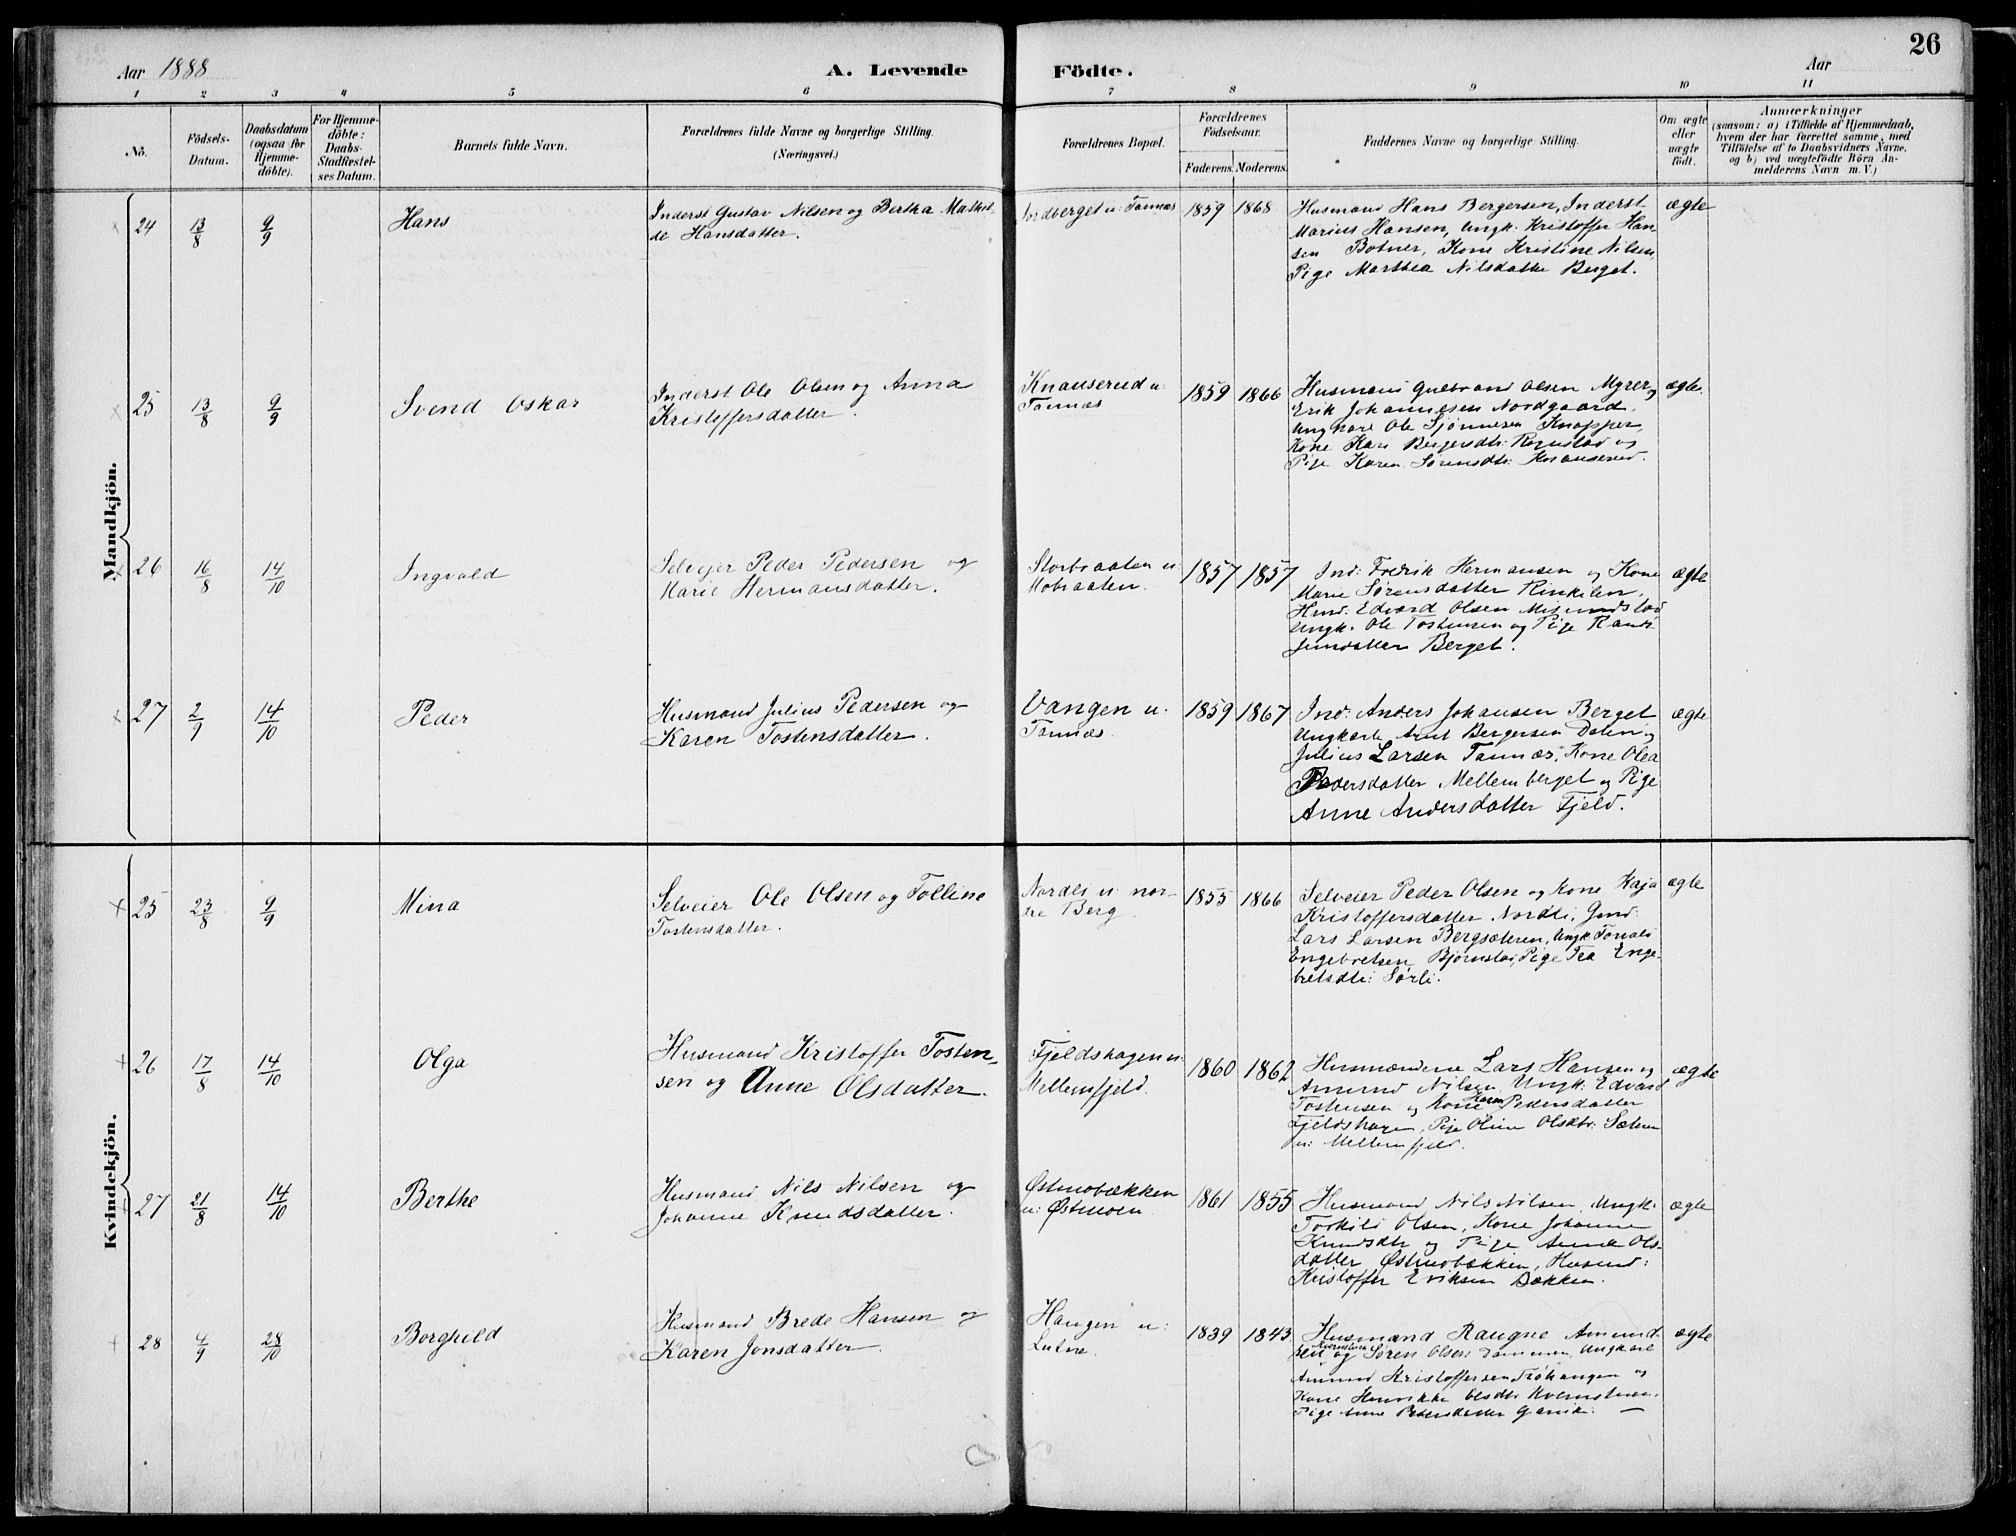 26
Aar 1888
A. Levende
Födte.
Aar
1 2 3 4 5 6 7 8 9 10 11
No.
Födsels-
Datum.
Daabsdatum
(ogsaa for
Hjemme-
döbte).
For Hjemme-
döbte:
Daabs-
Stadfæstel-
ses Datum.
Barnets fulde Navn.
Forældrenes fulde Navne og borgerlige Stilling.
(Næringsvei.)
Forældrenes Bopæl.
Forældrenes
Födselsaar.
Faderens. Moderens.
Faddernes Navne og borgerlige Stilling.
Om ægte
eller
uægte
født.
Anmærkninger
(saasom: a) i Tilfælde af Hjemmedaab,
hvem der har forrettet samme, med
Tilföielse af to Daabsvidners Navne.
og b) ved uægtefödte Börn An-
melderens Navn m. V.)
Mandkjön.
24 13/8 9/9 Hans
Inderst Gustav Nilsen og Bertha Mathil-
de Hansdatter.
Nordberget u: Tannæs
1859 1868
Husmand Hans Bergersen, Inderst
Marius Hansen, Ungk. Kristoffer Han-
sen Botner, Kone Kristine Nilsen
Pige Marthea Nilsdatter Berget.
ægte
25 13/8 9/9 Svend Oskar
Inderst Ole Olsen og Anna
Kristoffersdatter.
Knauserud u:
Tannæs
1859 1866
Husmand Gulbrand Olsen Myrer,
Erik Johannesen Nordgaard,
Ungkarl Ole Knapper,
Kone Kari Bergersdtr: Rognstad og
Pige Karen Sørensdtr: Knauserud.
ægte.
26 16/8 14/10 Ingvald
Selvejer Peder Pedersen og
Marie Hermansdatter.
Storbraaten u:
Mobraaten.
1857 1857
Ind: Fredrik Hermansen og Kone
Marie Sørensdatter Rinkilen,
Husm. Edvard Olsen
Ungk. Ole Tostensen og Pige Randi
Jensdatter Berget.
ægte
27 2/9 14/10 Peder
Husmand Julius Pedersen og
Karen Tostensdatter.
Vangen u:
Tannæs.
1859 1867
Ind: Anders Johansen Berget
Ungkarle Amt Bergersen Dalen og
Julius Larsen Tannæs, Kone Olea
Pedersdatter Mellemberget og Pige
Anne Andersdatter Fjeld.
ægte
Kvindekjön.
25 23/8 9/9 Mina
Selveier Ole Olsen og Tolline
Tostensdatter.
Nordli u: nor-
dre Berg.
1855 1866
Selveier Peder Olsen og Kone Kaja
Kristoffersdatter Nordli, Gmd:
Lars Larsen Bergsæteren, Ungk
Engebretsen Bjørnstad, Pige Tea Enge-
bretsdtr: Sørli.
ægte
26 17/8 14/10 Olga
Husmand Kristoffer Tosten-
sen og Anne Olsdatter.
Fjeldshagen u:
Mellemfjeld.
1860 1862
Husmændene Lars Hansen og
Amund Nilsen, Ungk: Edvard
Tostensen og Kone Karen Pedersdatter
Fjeldshagen, Pige Oline Olsdtr: Sæteren
u: Mellemfjeld.
ægte
27 21/8 14/10 Berthe
Husmand Nils Nilsen og
Johanne Knudsdatter.
Østmobækken
u: Østmoen
1861 1855
Husmand Nils Nilsen, Ungk:
Torkild Olsen, Kone Johanne
Knudsdtr og Pige Anne Ols-
datter Østmobækken, Husmd:
Kristoffer Eriksen Bækken.
ægte
28 4/9 28/10 Borghild
Husmand Brede Hansen og
Karen Jonsdatter.
Haugen u:
Lutne.
1839 1843.
Husmænd Raugne Amund-
sen Kvernstuen og Søren Olsen Dammen, Ungkarl
Amund Kristoffersen og
Kone Henrikke Olsdtr Kvernstuen,
Pige Anne Pedersdatter
ægte